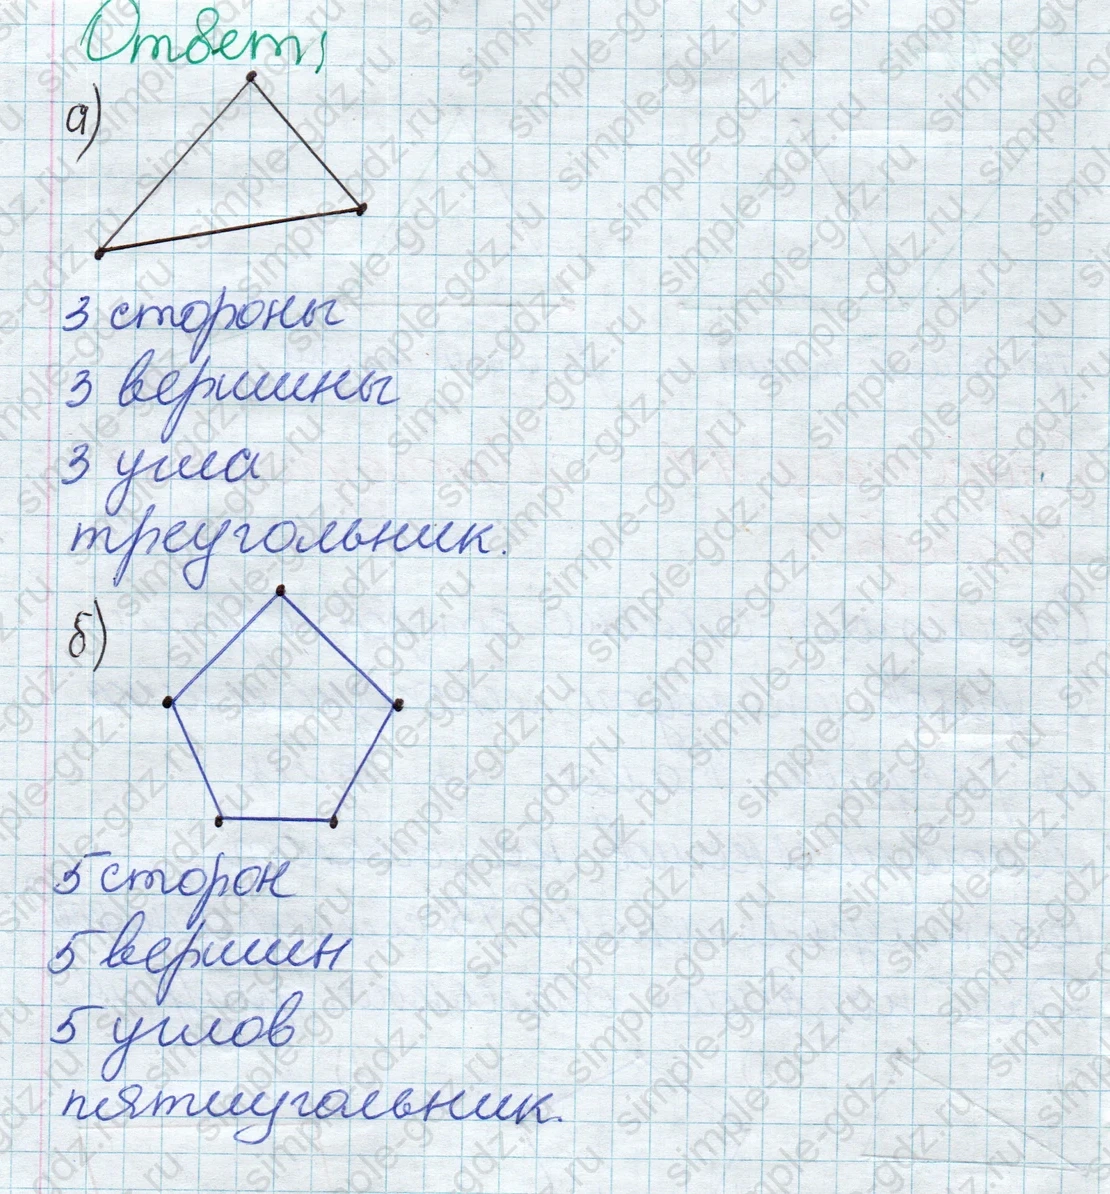 Ответ,
а)
3 стороны
3 вершины
3 угла
треугольник.
б)
5 сторон
5 вершин
5 углов
пятиугольник.
simple-gdz.ru